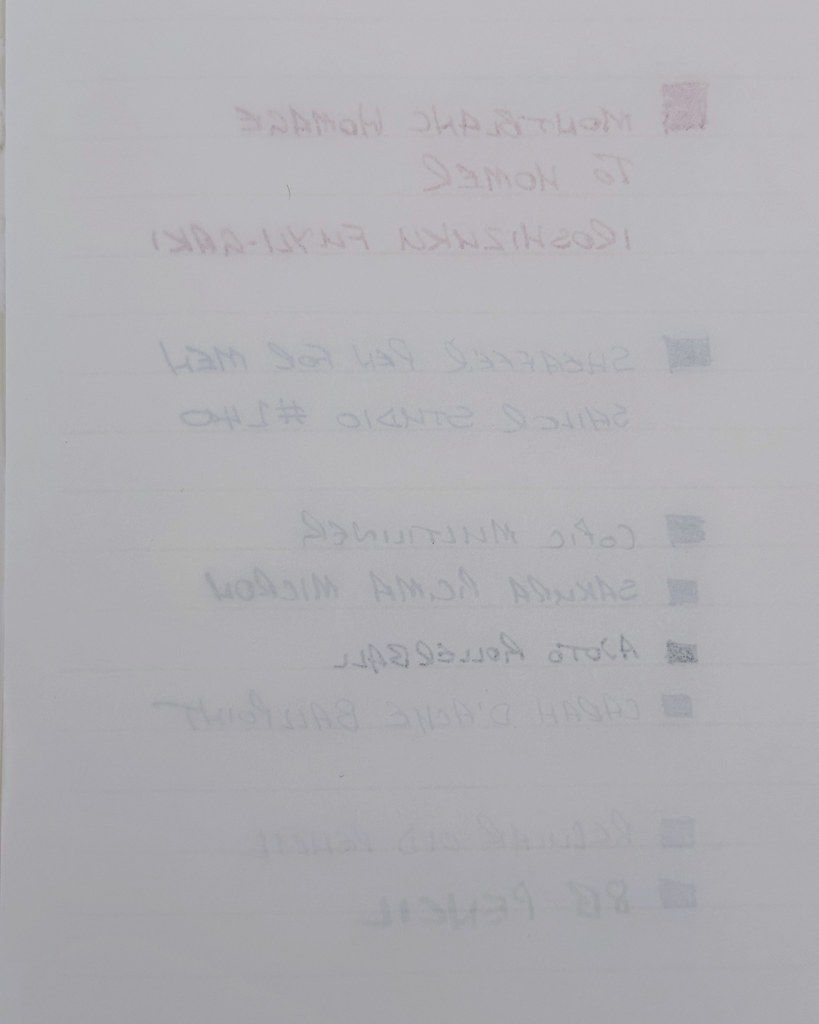 MONTBLANC HOMAGE
TO HOMER
IROSHIZUKU FUYU-GAKI
SHEAFFER PEN FOR MEN
SAILOR STUDIO #240
COPIC MULTILINER
SAKURA PIGMA MICRON
AJOTO ROLLERBALL
CARAN D'ACHE BALLPOINT
REGULAR OLD PENCIL
8B PENCIL